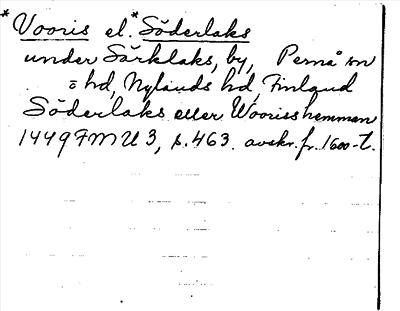 *Vooris el. *Söderlaks
under Särklaks, by, Pernå sn
= hd, Nylands hd, Finland
Söderlaks eller Woorisshemman
1449 FMU 3, s. 463. avskr. fr. 1600-t.